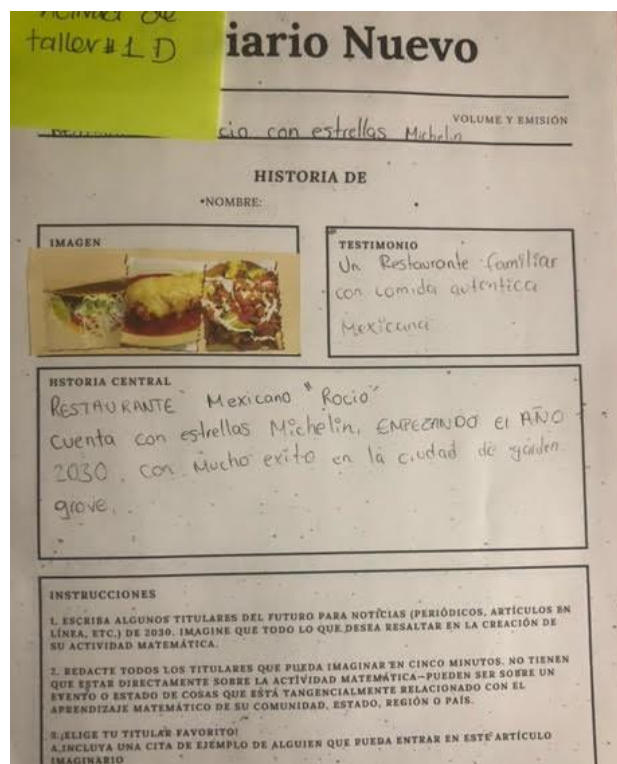 de
taller #1 D
iario Nuevo
VOLUME Y EMISIÓN
cio con estrellas Michelin
HISTORIA DE
•NOMBRE:
IMAGEN
TESTIMONIO
Un Restaurante familiar
con comida autentica
Mexicana
HSTORIA CENTRAL
RESTAURANTE Mexicano "Rocio"
Cuenta con estrellas Michelin, EMPEZANDO el AÑO
2030, con Mucho exito en la ciudad de garden
grove.
INSTRUCCIONES
1. ESCRIBA ALGUNOS TITULARES DEL FUTURO PARA NOTICIAS (PERIÓDICOS, ARTÍCULOS EN
LÍNEA, ETC.) DE 2030. IMAGINE QUE TODO LO QUE DESEA RESALTAR EN LA CREACIÓN DE
SU ACTIVIDAD MATEMÁTICA.
2. REDACTE TODOS LOS TITULARES QUE PUEDA IMAGINAR EN CINCO MINUTOS. NO TIENEN
QUE ESTAR DIRECTAMENTE SOBRE LA ACTIVIDAD MATEMÁTICA—PUEDEN SER SOBRE UN
EVENTO O ESTADO DE COSAS QUE ESTÁ TANGENCIALMENTE RELACIONADO CON EL
APRENDIZAJE MATEMÁTICO DE SU COMUNIDAD, ESTADO, REGIÓN O PAÍS.
3. ¡ELIGE TU TITULAR FAVORITO!
A.INCLUYA UNA CITA DE EJEMPLO DE ALGUIEN QUE PUEDA ENTRAR EN ESTE ARTÍCULO
IMAGINARIO